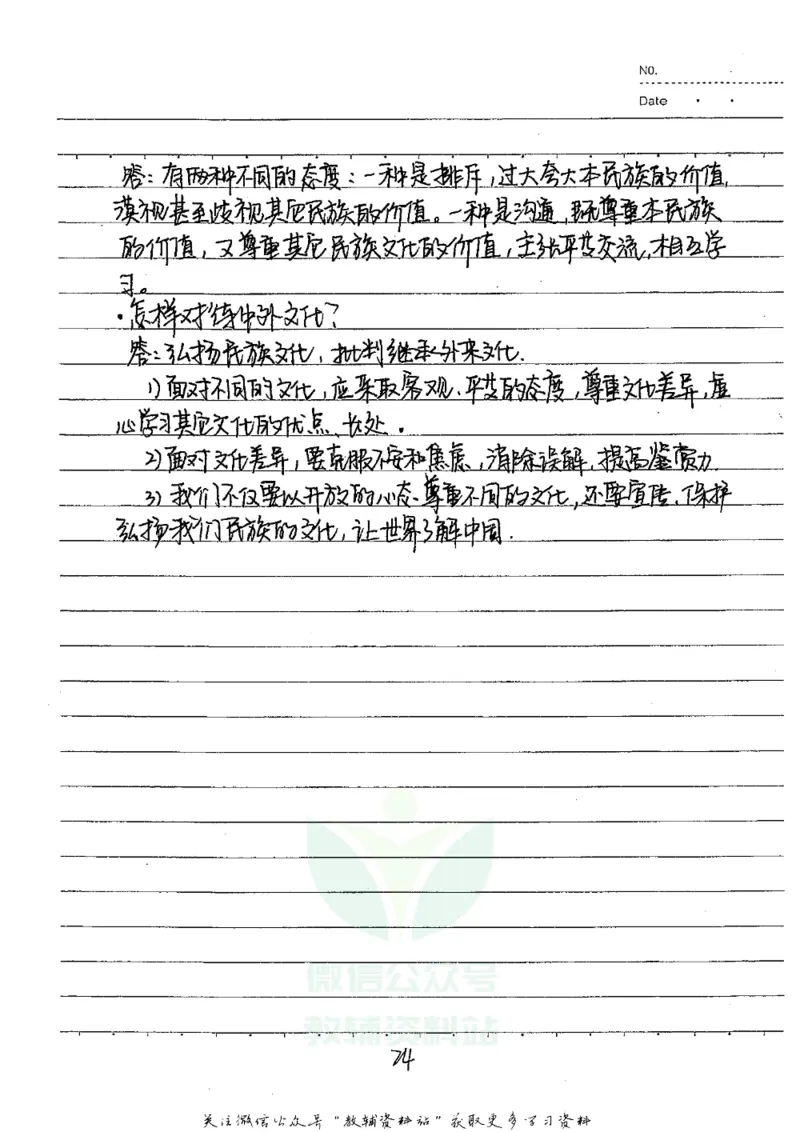 No.
Date
答：有两种不同的态度：一种是排斥，过大夸大本民族的价值，
漠视甚至歧视其他民族的价值。一种是沟通，既尊重本民族
的价值，又尊重其他民族文化的价值，主张平等交流，相互学
习。
·怎样对待中外文化？
答：弘扬民族文化，批判继承外来文化．
1)面对不同的文化，应采取客观、平等的态度，尊重文化差异，虚
心学习其他文化的优点、长处．
2)面对文化差异，要克服不安和焦虑，消除误解，提高鉴赏力．
3)我们不仅要以开放的心态、尊重不同的文化，还要宣传、保护
弘扬我们民族的文化，让世界了解中国．
微信公众号
教辅资料站
74
关注微信公众号“教辅资料站”获取更多学习资料